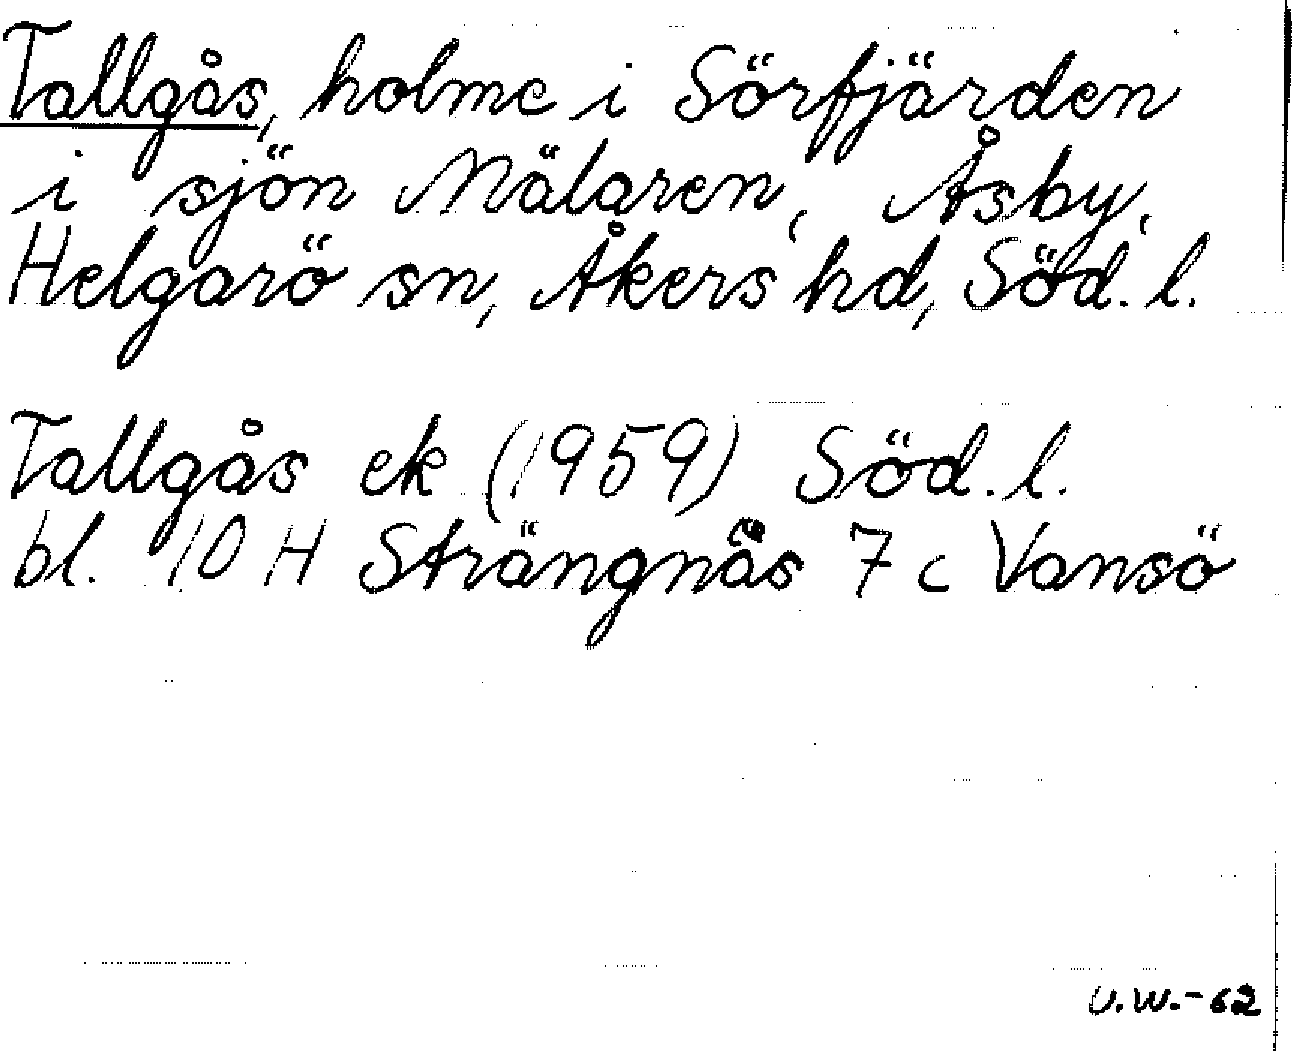 Tallgås, holme i Sörfjärden
i sjön Mälaren, Åsby,
Helgarö sn, Åkers hd, Söd. l.
Tallgås ek (1959) Söd. l.
bl. 10 H Strängnäs 7 c Vansö
U.W.-62